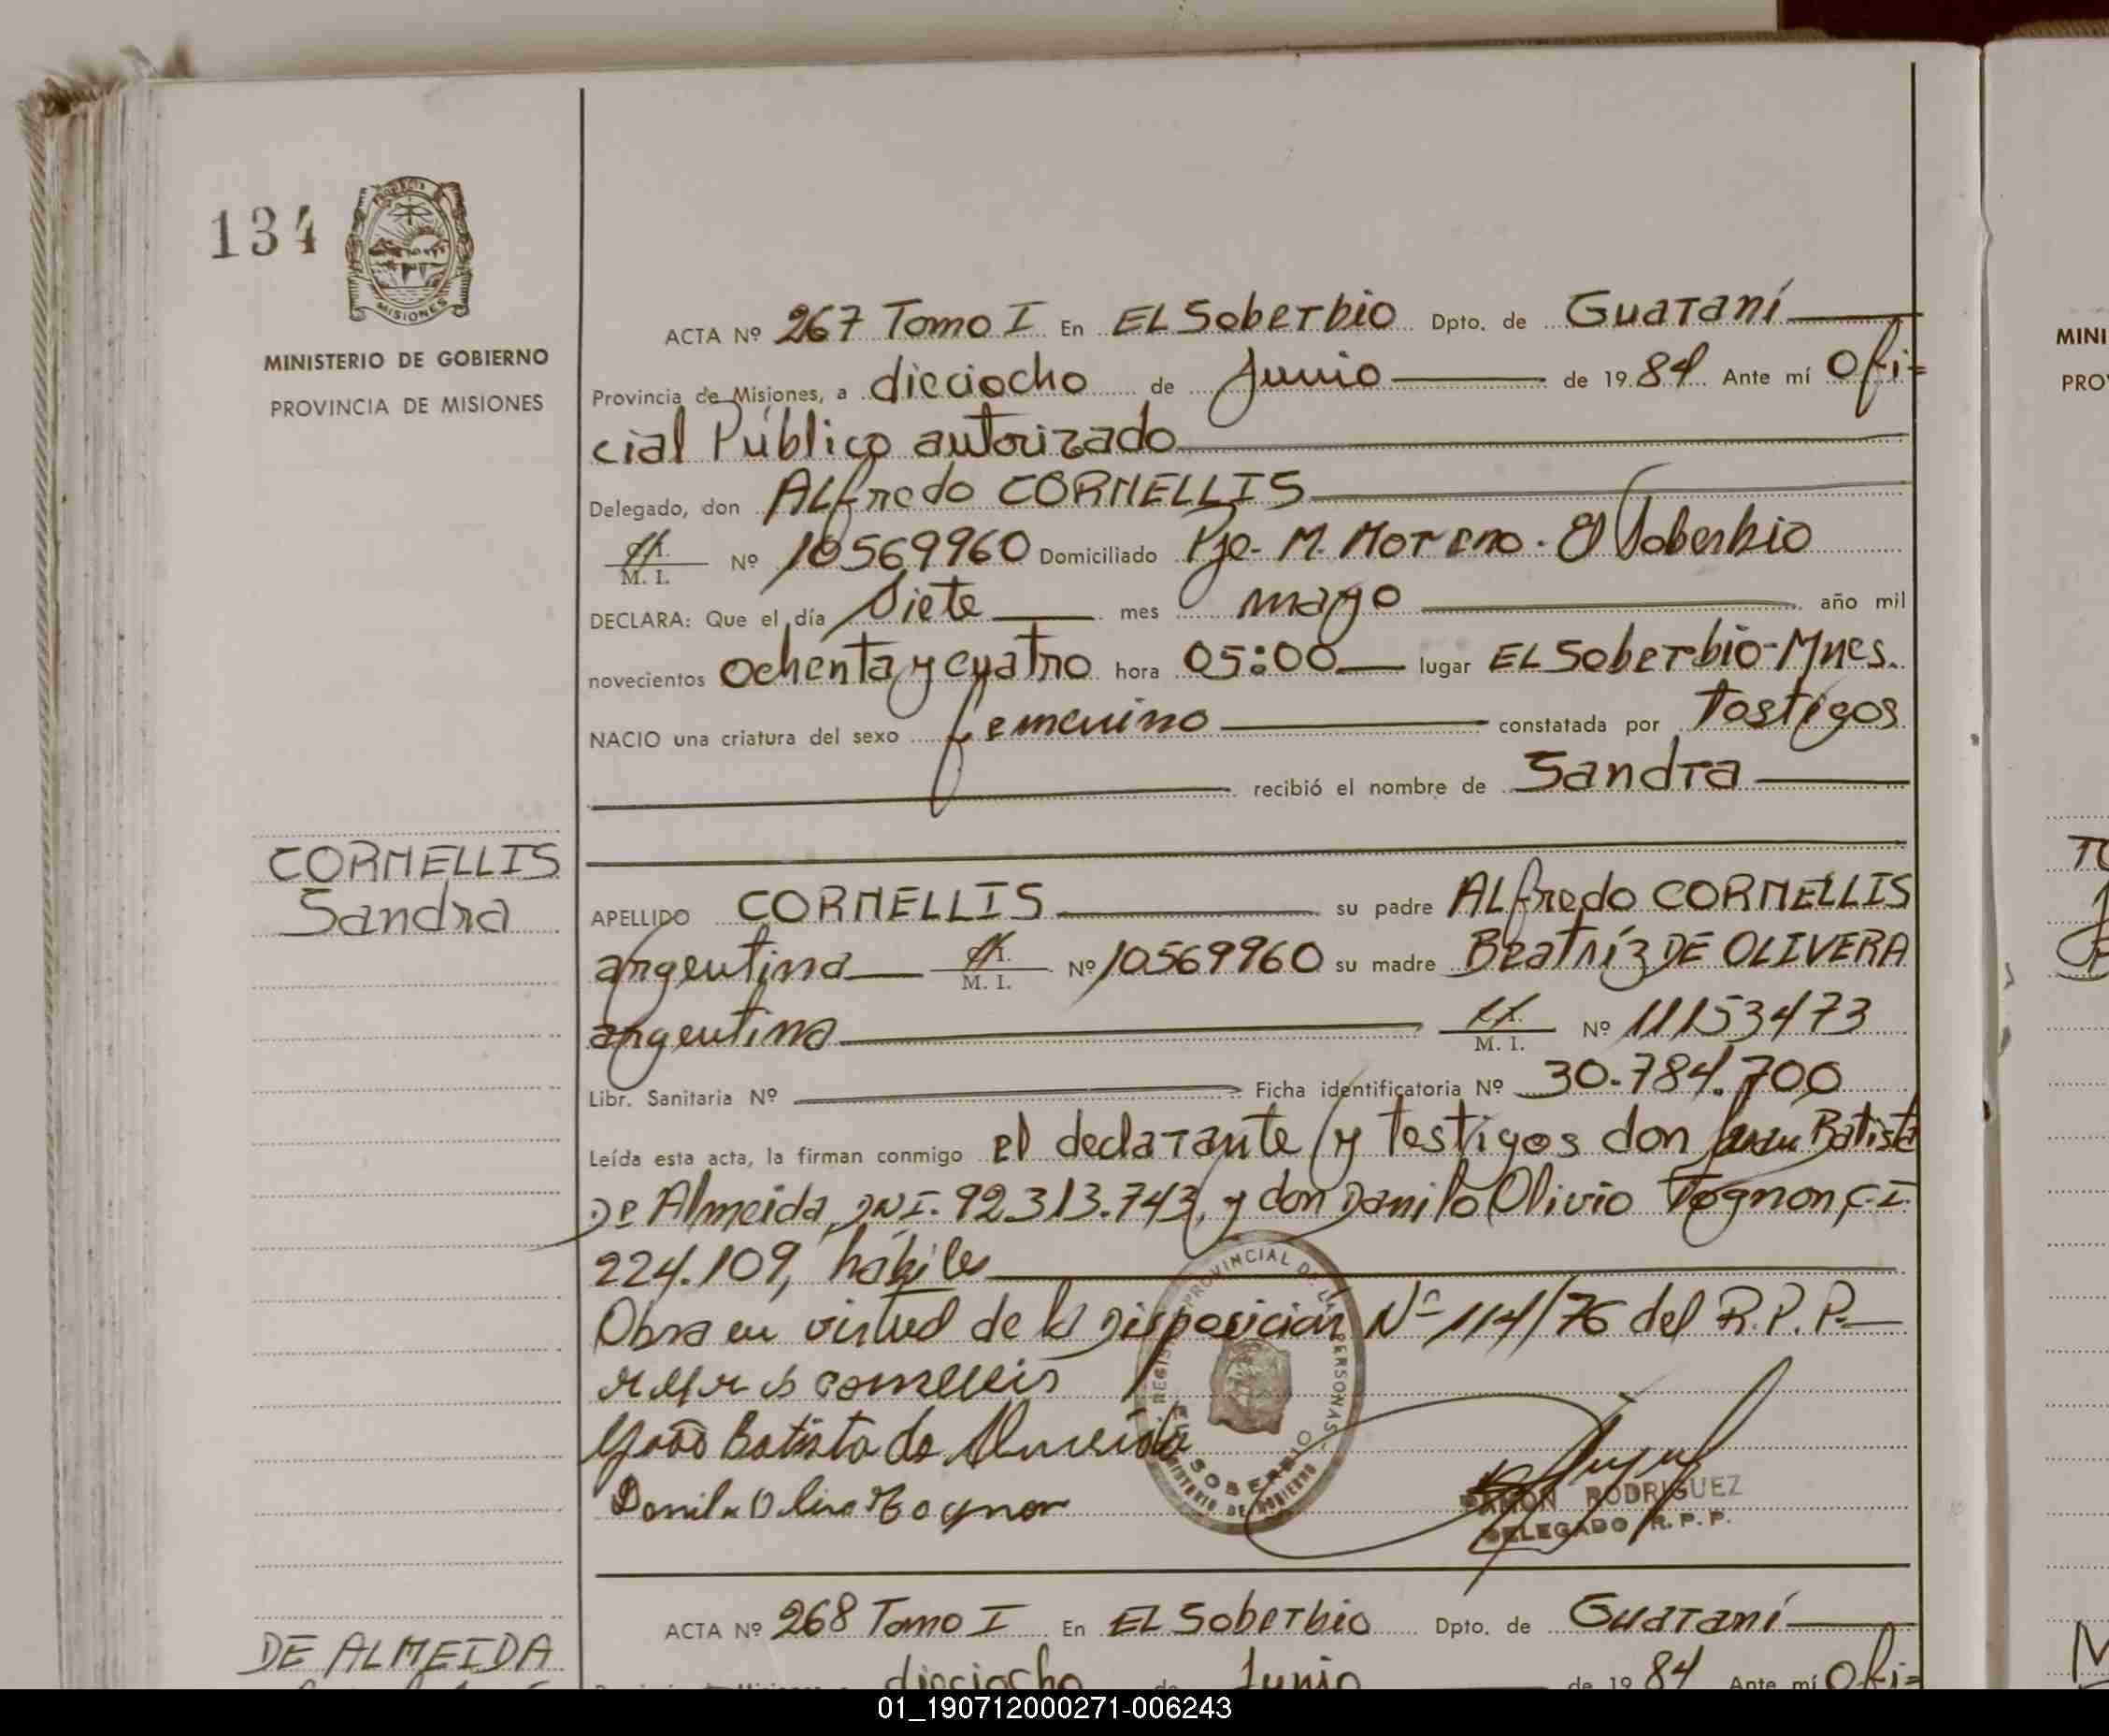 134
MISIONES
MINISTERIO DE GOBIERNO
PROVINCIA DE MISIONES
ACTA Nº 267 Tomo I En EL Soberbio Dpto. de Guaraní
Provincia de Misiones, a dieciocho de Junio de 1984 Ante mí Ofi-
cial Público autorizado
Delegado, don ALfredo CORNELLIS
M. I. Nº 10569960 Domiciliado Pje. M. Moreno. El Soberbio
DECLARA: Que el día Siete mes mayo año mil
novecientos ochenta y cuatro hora 05:00 lugar EL Soberbio-Mnes.
NACIO una criatura del sexo femenino constatada por Testigos
recibió el nombre de Sandra
CORNELLIS
Sandra
APELLIDO CORNELLIS su padre ALfredo CORNELLIS
argentina C.I. M. I. Nº 10569960 su madre Beatríz DE OLIVERA
argentina M. I. Nº 11153473
Libr. Sanitaria Nº Ficha identificatoria Nº 30.784.700
Leída esta acta, la firman conmigo el declarante y testigos don Juan Batista
De Almeida DNI. 92.313.743, y don Danilo Olivio Tognon, C.I.
224.109, hábiles
Obra en virtud de la Disposición Nº 114/76 del R.P.P.
cornellis
João Batista de Almeida
Danilo Olivo Tognon
REGISTRO PROVINCIAL DE LAS PERSONAS
EL SOBERBIO
MINISTERIO DE GOBIERNO
RAMON RODRIGUEZ
DELEGADO R.P.P.
ACTA Nº 268 Tomo I En EL Soberbio Dpto. de Guaraní
DE ALMEIDA
dieciocho de Junio de 1984 Ante mí Ofi-
MINI
PRO
01_190712000271-006243